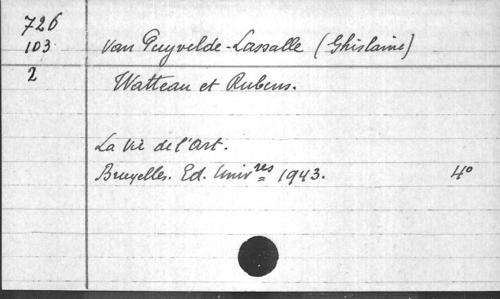 726
103 Van Puyvelde-Lassalle (Ghislaine)
2 Watteau et Rubens.
La Vie de l'Art.
Bruxelles. Ed. Univ.res 1943. 4°